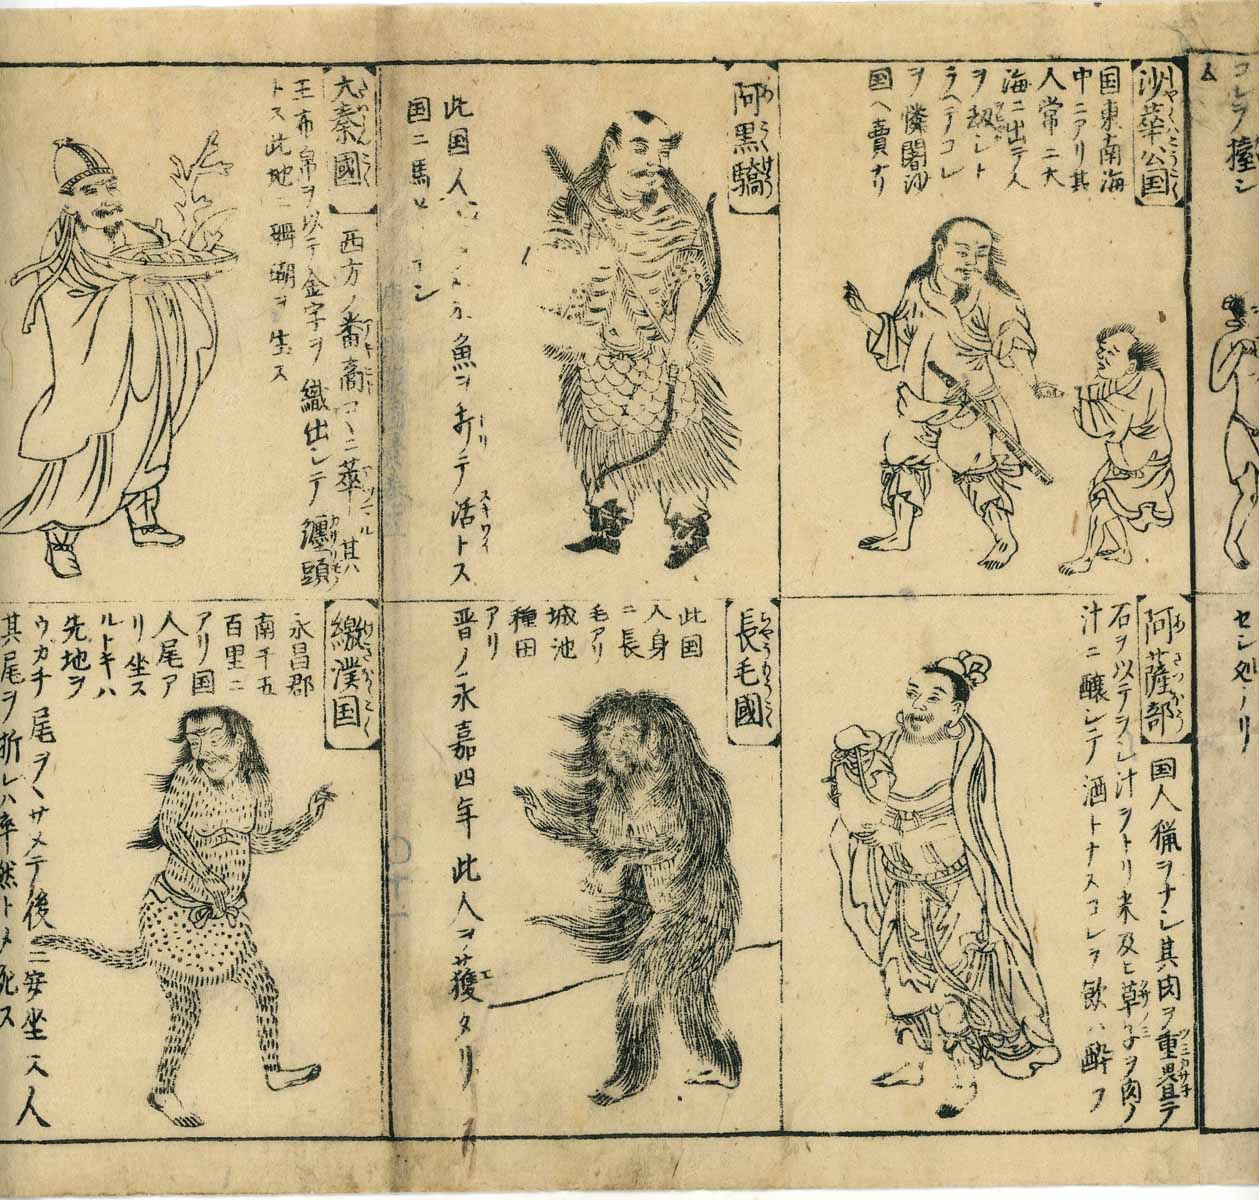 コレヲ撞シ
セシ処アリ
沙華公国
国東南海
中ニアリ其
人常ニ大
海ニ出テ人
ヲ劫シト
ラヘテコレ
ヲ憐闍沙
国ヘ賣ナリ
阿薩部
国人猟ヲナシ其肉ヲ重畳テ
石ヲ以テヲシ汁ヲトリ米及ヒ草子ヲ肉ノ
汁ニ醸シテ酒トナスコレヲ飲ハ酔フ
阿黒驕
此国人
魚ヲ釣テ活トス
国ニ馬
長毛國
此国
人身
ニ長
毛アリ
城池
種田
アリ
晋ノ永嘉四年此人ヲ獲タリ
大秦國
西方ノ番商コヽニ萃ル其ハ
王布帛ヲ以テ金字ヲ織出シテ纏頭
トス此地ニ珊瑚ヲ生ス
繳濮国
永昌郡
南千五
百里ニ
アリ国
人尾ア
リ坐ス
ルトキハ
先地ヲ
ウガチ尾ヲヽサメテ後ニ安坐ス人
其尾ヲ折レハ卒然トメ死ス